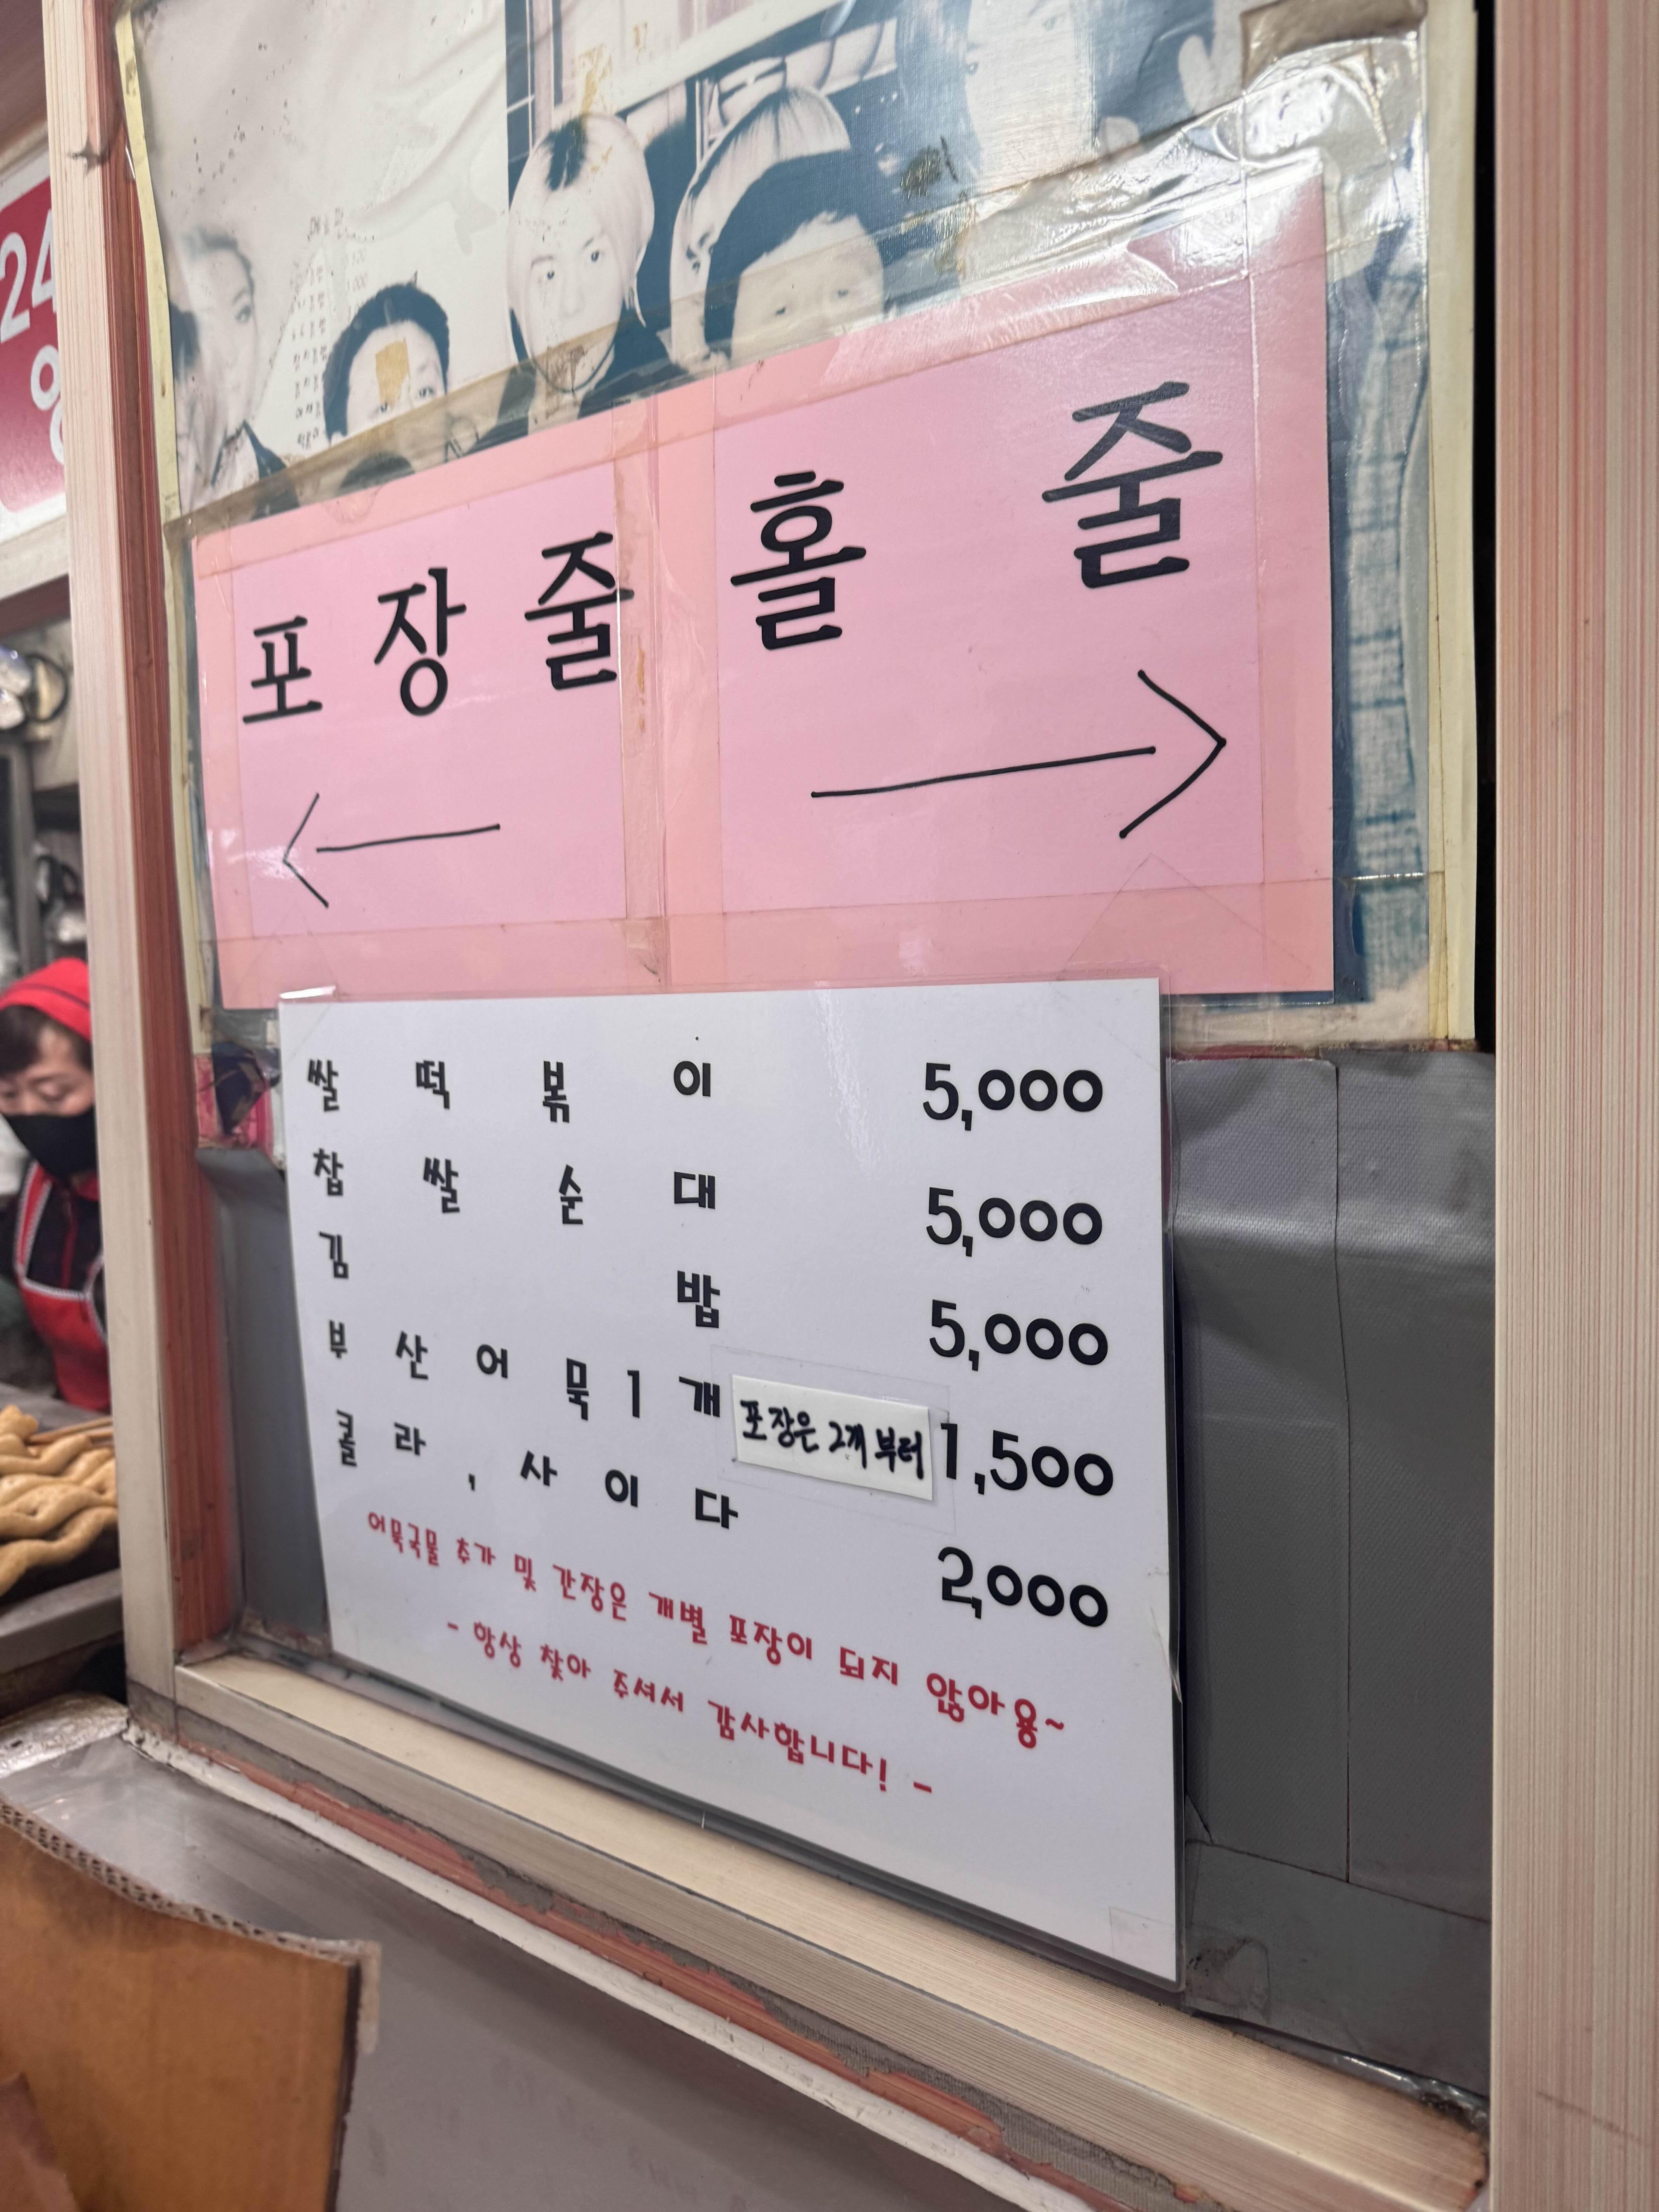 24
포장줄
←
홀 줄
→
쌀떡볶이 5,000
찹쌀순대 5,000
김밥 5,000
부산어묵1개 포장은 2개부터 1,500
콜라, 사이다 2,000
어묵국물 추가 및 간장은 개별 포장이 되지 않아용~
- 항상 찾아 주셔서 감사합니다! -